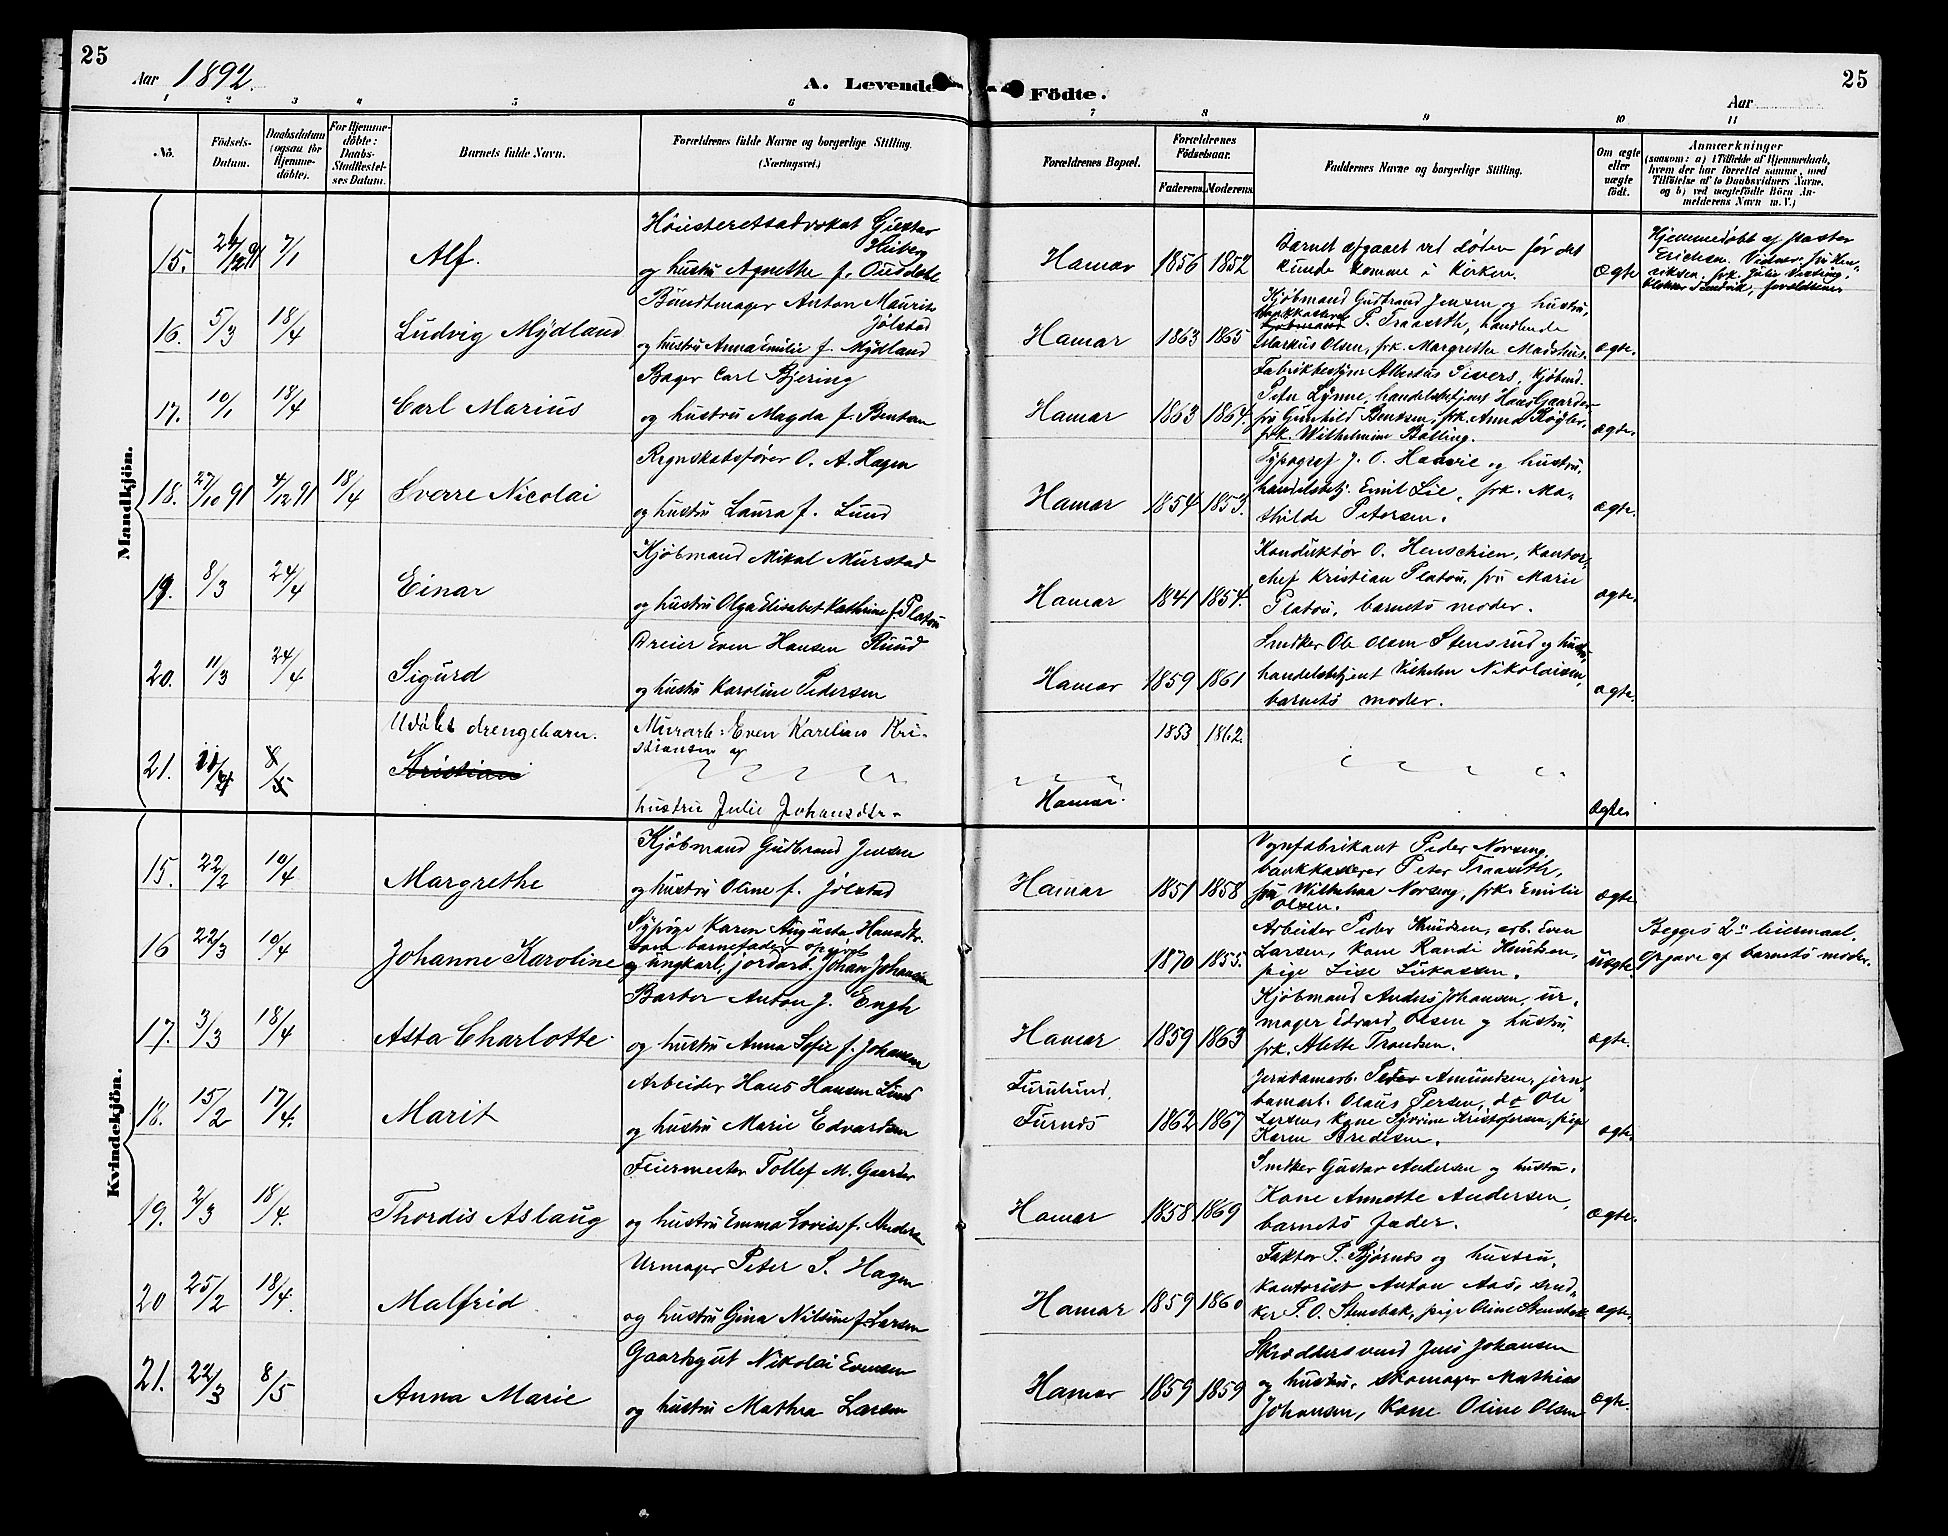 25
Aar 1892.
A. Levende Födte.
25
Aar
1 2 3 4 5 6 7 8 9 10 11
No.
Födsels-Datum.
Daabsdatum (ogsaa for Hjemme-döbte).
For Hjemme-döbte: Daabs-Stadfæstelses Datum.
Barnets fulde Navn.
Forældrenes fulde Navne og borgerlige Stilling. (Næringsvei.)
Forældrenes Bopæl.
Forældrenes Födselsaar.
Faderens. Moderens.
Faddernes Navne og borgerlige Stilling.
Om ægte eller uægte født.
Anmærkninger
(saasom: a) i Tilfælde af Hjemmedaab, hvem der har forrettet samme, med Tilføielse af to Daabsvidners Navne, og b) ved uægtefödte Börn Anmelderens Navn m. V.)
Mandkjön.
Høiesteretsadvokat Gustav
Heiberg
15. 26/12 91 7/1 Alf. og hustru Agnethe f.
Hamar 1856 1852
Barnet afgaaet ved døden før det
kunde komme i kirken.
ægte
Hjemmedøbt af pastor
Erichsen. Vidner: fru Hen-
riksen, frk. Julie
Bundtmager Anton Maurits
Jølstad
16. 5/3 18/4 Ludvig Mydland
og hustru Anna Emilie f. Mydland
Hamar 1863 1865
Kjøbmand Gudbrand Jensen og hustru,
bankkasserer P. Traaseth, handlende
Markus Olsen, frk. Margrethe Madshus.
ægte.
Bager Carl Bjering
17. 10/1 18/4 Carl Marius
og hustru Magda f. Bentsen
Hamar 1863 1864.
Fabrikbestyrer Albertus Sivers, kjøbmd.
Peter Lynne, handelsbetjent Hans Gaarder
fru Gunhild Bentsen, frk. Anna Kogler,
frk. Wilhelmine Bolling.
ægte.
Regnskabsfører O. A. Hagen
18. 27/10 91 4/12 91 18/4 Sverre Nicolai
og hustru Laura f. Lund
Hamar 1854 1853.
Typograf J. O. Haavie og hustru,
handelsbetj. Emil Lie, frk. Ma-
thilde Petersen.
ægte.
Kjøbmand Mikal Murstad
19. 8/3 24/4 Einar
og hustru Olga Elisabet Kathrine f. Platou
Hamar 1841 1854.
Konduktør O. Henschien, kontor-
chef Kristian Platou, fru Marie
Platou, barnets moder.
ægte.
Dreier Even Hansen Ruud
20. 11/3 24/4 Sigurd
og hustru Karoline Pedersen
Hamar 1859 1861
Snedker Ole Olsen Stensrud og hustru,
handelsbetjent Vilhelm Nikolaisen,
barnets moder.
ægte.
Udøbt drengebarn.
Murarb: Even Karelius Kri-
stiansen og
1853 1862.
21. 11/2 8/5 Kristian
hustru Julie Johansdtr.
Hamar.
ægte
Kvindekjön.
Kjøbmand Gudbrand Jensen
15. 22/2 10/4 Margrethe
og hustru Oline f. Jølstad
Hamar 1851 1858
Vognfabrikant Peder Norseng,
bankkasserer Peter Traaseth,
fru Wilhelma Norseng, frk. Emilie
Olsen.
ægte
Sypige Karen Augusta Hansdtr.
som barnefader opgivet
16 22/3 10/4 Johanne Karoline
og ungkarl, jordarb. Johan Johansen
1870 1855.
Arbeider Peder Knudsen, arb. Even
Larsen, kone Randi Knudsen,
pige Lise Lukassen.
uægte.
Begges 2det leiermaal.
Opgave af barnets moder.
Barber Anton J. Engh
17. 3/3 18/4 Asta Charlotte
og hustru Anna Sofie f. Johansen
Hamar 1859 1863
Kjøbmand Anders Johansen, ur-
mager Edvard Olsen og hustru
frk. Alette Trondsen.
ægte.
Arbeider Hans Hansen Lund
18. 15/2 17/4. Marit
og hustru Marie Edvardsen
Furulund,
Furnæs 1862 1867
Jernbanearb. Peder Amundsen, jern-
banearb. Olaus Persen, do Ole
Larsen, kone Syverine Kristofersen, pige
Karen Bredesen.
ægte.
Feiermester Tollef M. Gaarder
19. 2/3 18/4. Thordis Aslaug
og hustru Emma Lovise f. Andersen
Hamar 1858 1869
Snedker Gustav Andersen og hustru,
Kone Annette Andersen,
barnets fader.
ægte.
Urmager Peter S. Hagen
20 25/2 18/4. Malfrid
og hustru Gina Nilsine f. Larsen
Hamar 1859 1860
Faktor P. Bjørnes og hustru,
kontorist Anton Aas, sned-
ker P. O. Stensbak, pige Oline Stensbak
ægte.
Gaardsgut Nikolai Evensen
21. 22/3 8/5 Anna Marie
og hustru Mathea Larsen
Hamar 1859 1859
Skræddersvend Jens Johansen
og hustru, skomager Mathias
Johansen, Kone Oline Olsen
ægte.